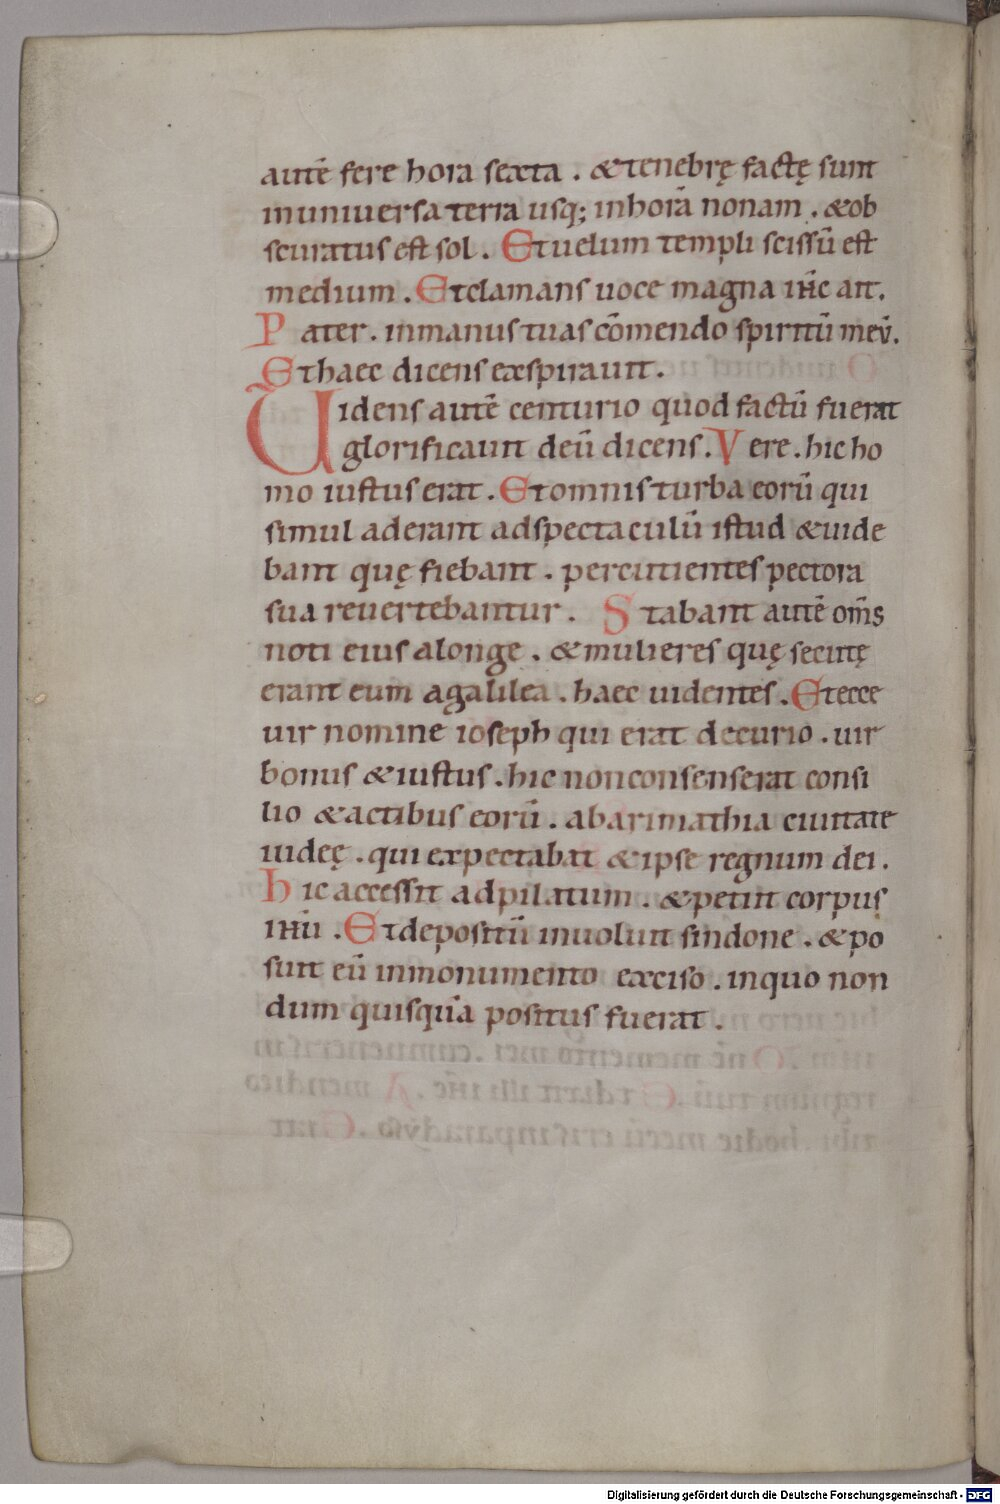 autē fere hora sexta . & tenebrę factę sunt
in universa terra usq; in horā nonam . & ob
scuratus est sol . Et uelum templi scissū est
medium . Et clamans uoce magna ihc̄ ait .
Pater . in manus tuas cōmendo spiritū meū .
Et haec dicens expirauit .
Uidens autē centurio quod factū fuerat
glorificauit deū dicens . Vere . hic ho
mo iustus erat . Et omnis turba eorū qui
simul aderant ad spectaculū istud & uide
bant quę fiebant . percutientes pectora
sua reuertebantur . Stabant autē om̄s
noti eius a longe . & mulieres quę secutę
erant eum a galilea . haec uidentes . Et ecce
uir nomine ioseph qui erat decurio . uir
bonus & iustus . hic non consenserat consi
lio & actibus eorū . ab arimathia ciuitate
iudeę . qui expectabat & ipse regnum dei .
Hic accessit ad pilatum . & petiit corpus
ihū . Et depositū inuoluit sindone . & po
suit eū in monumento exciso . in quo non
dum quisquā positus fuerat .
Digitalisierung gefördert durch die Deutsche Forschungsgemeinschaft - DFG